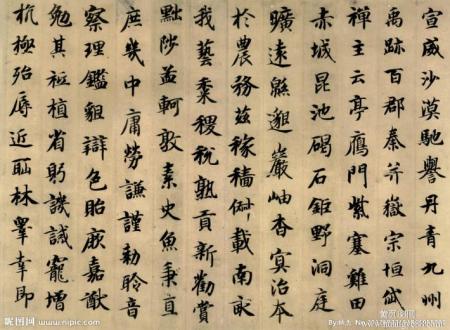 宣威沙漠馳譽丹青九州
禹跡百郡秦并嶽宗恒岱
禪主云亭鴈門紫塞雞田
赤城昆池碣石鉅野洞庭
曠遠緜邈巖岫杳冥治本
於農務茲稼穡俶載南畝
我藝黍稷稅熟貢新勸賞
黜陟孟軻敦素史魚秉直
庶幾中庸勞謙謹勑聆音
察理鑑貌辯色貽厥嘉猷
勉其祗植省躬譏誡寵增
抗極殆辱近耻林皋幸即
昵图网 www.nipic.com